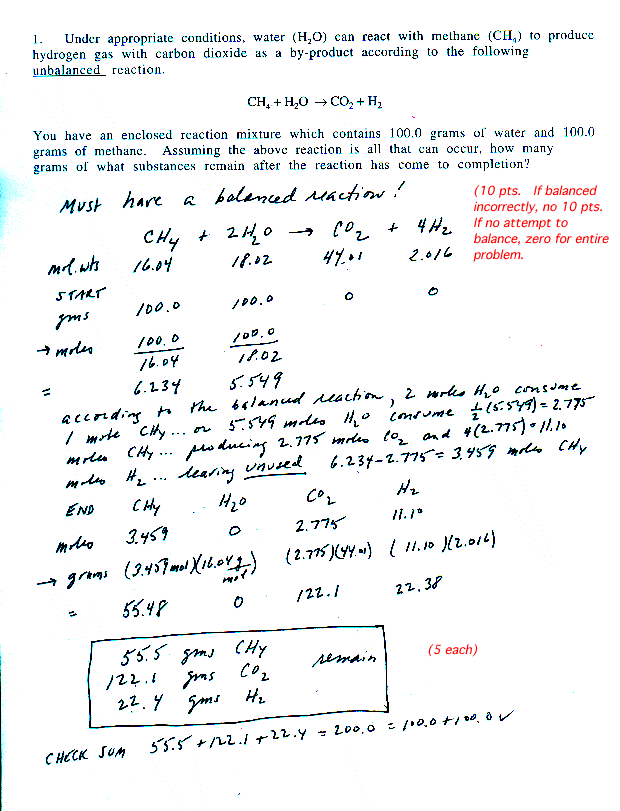 1. Under appropriate conditions, water (H₂O) can react with methane (CH₄) to produce
hydrogen gas with carbon dioxide as a by-product according to the following
unbalanced reaction.
CH₄ + H₂O → CO₂ + H₂
You have an enclosed reaction mixture which contains 100.0 grams of water and 100.0
grams of methane. Assuming the above reaction is all that can occur, how many
grams of what substances remain after the reaction has come to completion?
Must have a balanced reaction!
(10 pts. If balanced
incorrectly, no 10 pts.
If no attempt to
balance, zero for entire
problem.
CH₄ + 2H₂O → CO₂ + 4H₂
mol. wts 16.04 18.02 44.01 2.016
START
gms 100.0 100.0 0 0
→ moles 100.0/16.04 100.0/18.02
= 6.234 5.549
according to the balanced reaction, 2 moles H₂O consume
1 mole CH₄ ... or 5.549 moles H₂O consume ½(5.549) = 2.775
moles CH₄ ... producing 2.775 moles CO₂ and 4(2.775) = 11.10
moles H₂ ... leaving unused 6.234-2.775 = 3.459 moles CH₄
END CH₄ H₂O CO₂ H₂
moles 3.459 0 2.775 11.10
→ grams (3.459 mol)(16.04 g/mol) (2.775)(44.01) (11.10)(2.016)
= 55.48 0 122.1 22.38
55.5 gms CH₄
122.1 gms CO₂ remain
22.4 gms H₂
(5 each)
CHECK SUM 55.5 + 122.1 + 22.4 = 200.0 = 100.0 + 100.0 ✓